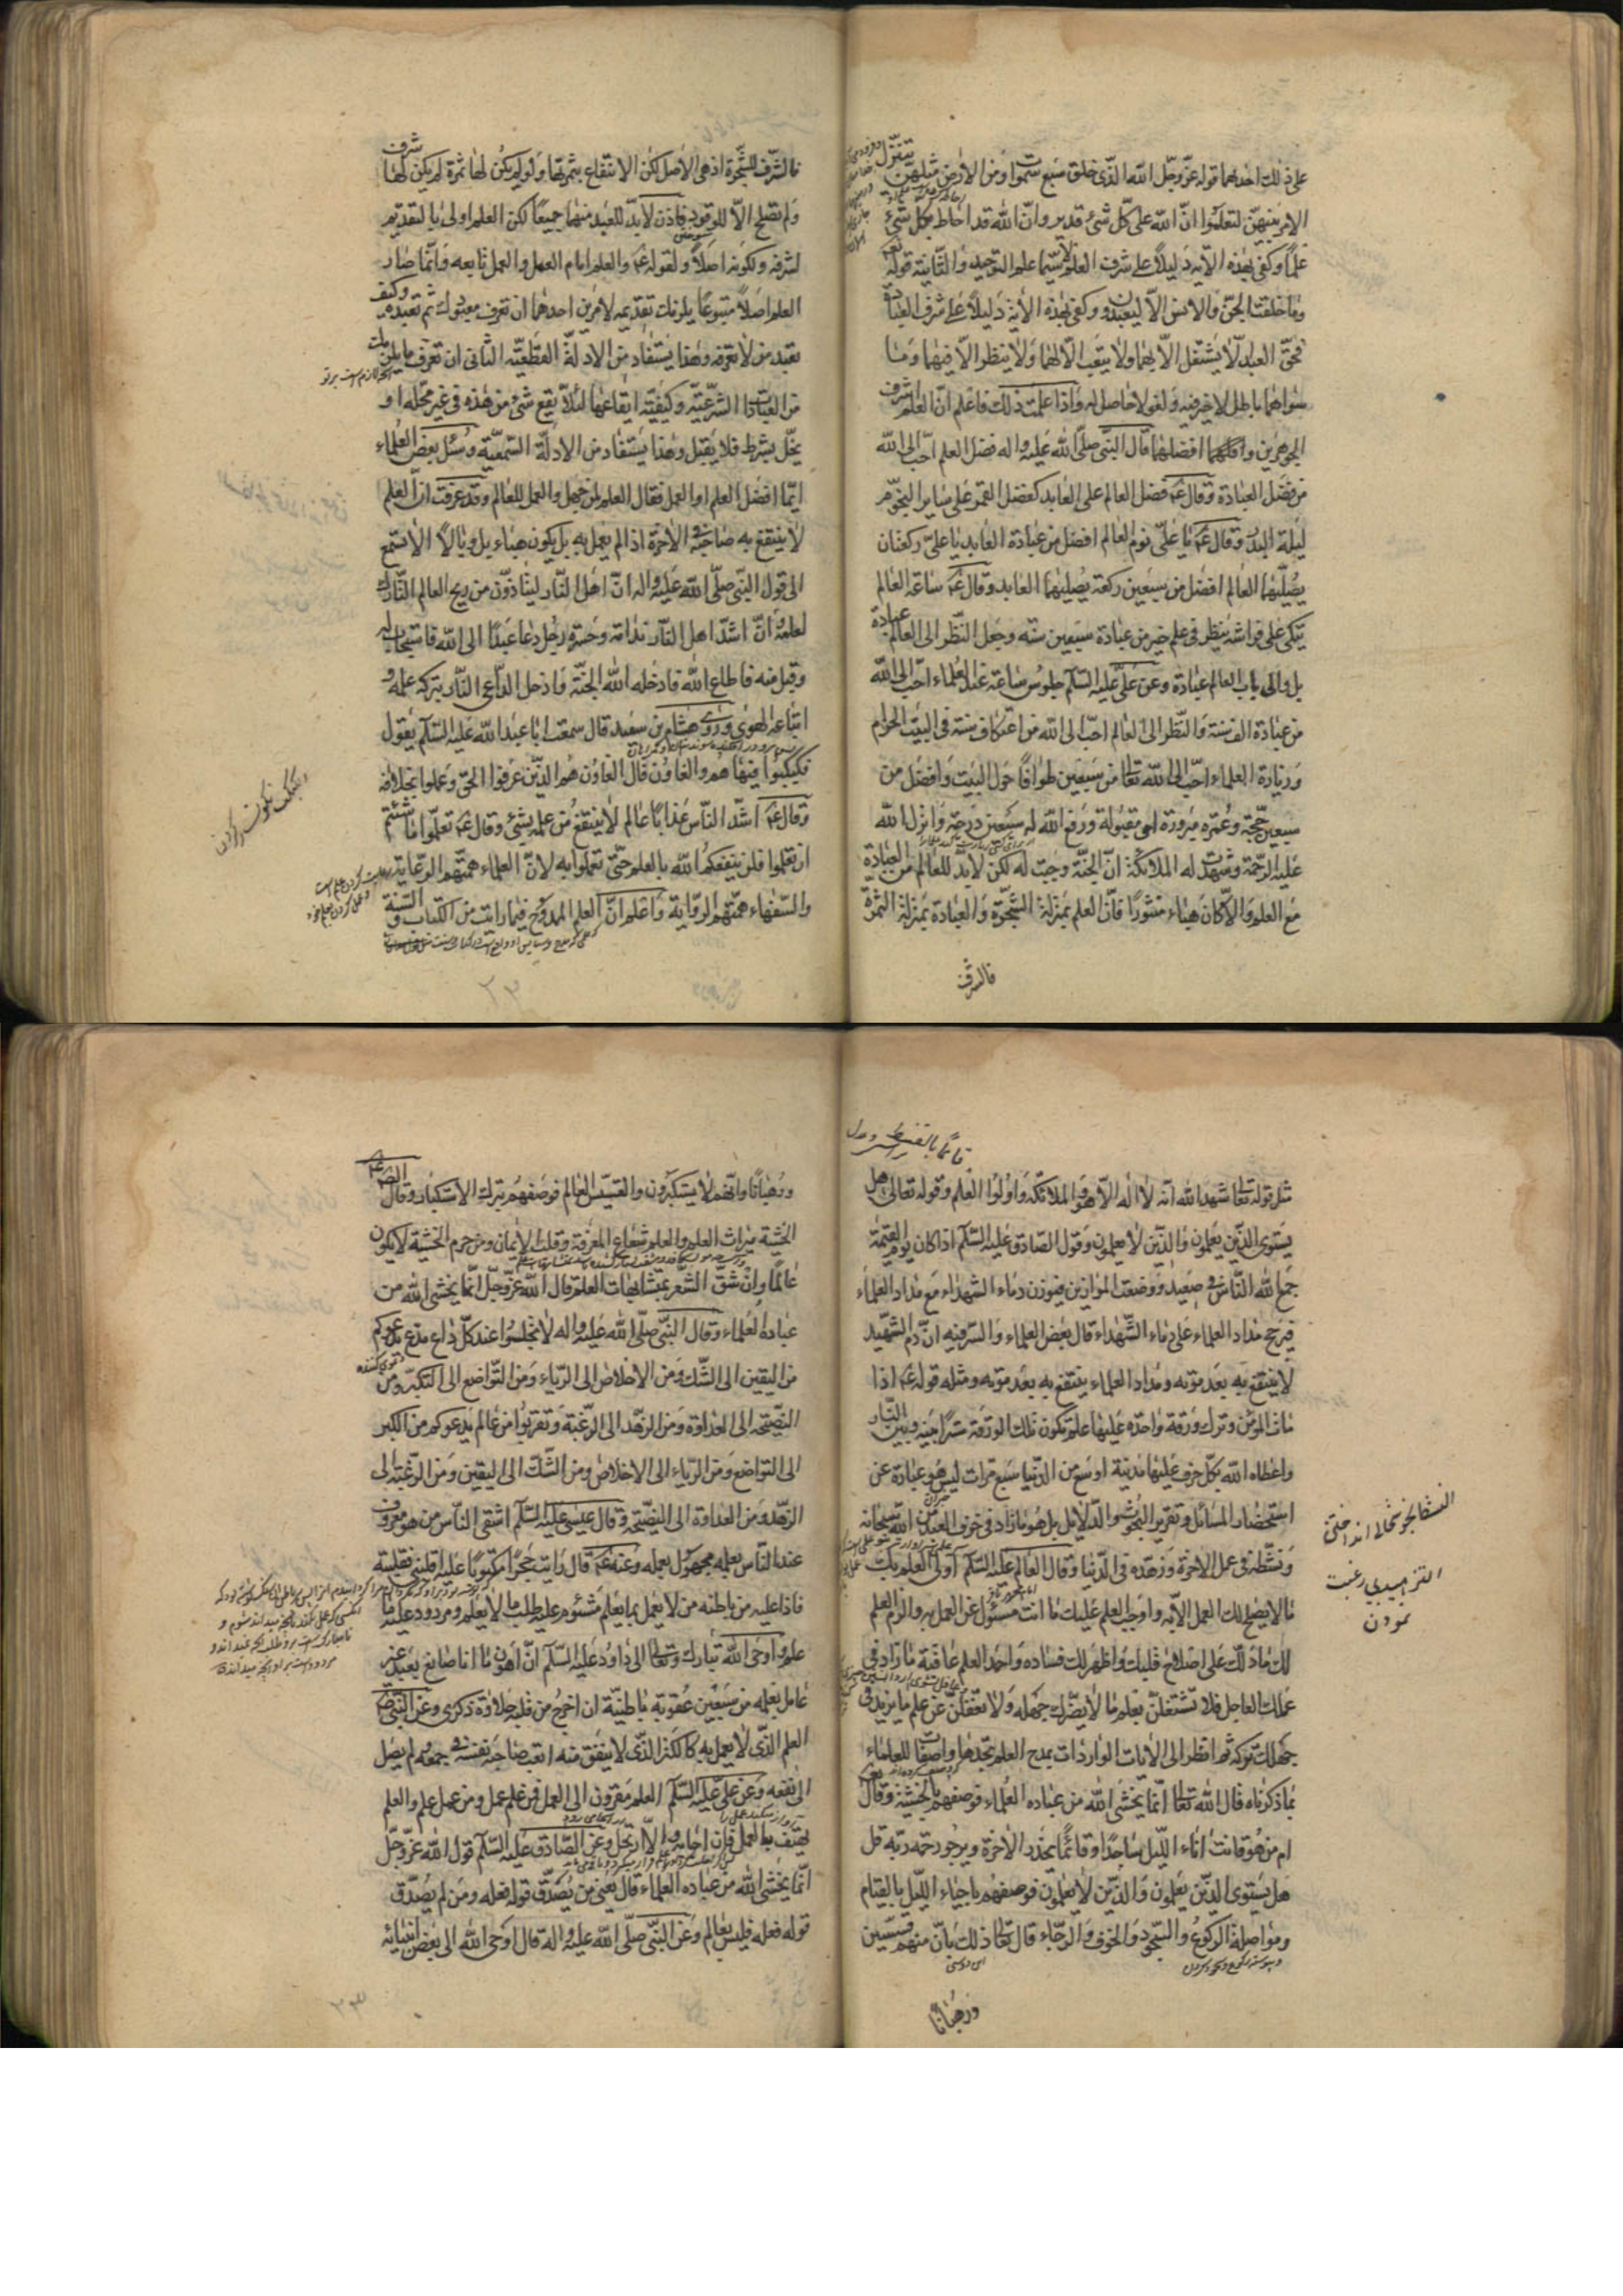 على ذلك احدهما قوله عزّ وجلّ الله الذّى خلق سبع سموات ومن الارض مثلهنّ يتنزّل
الامر بينهنّ لتعلموا انّ الله على كلّ شئ قدير وانّ الله قد احاط بكلّ شئ
علماً وكفى بهذه الآية دليلاً على شرف العلم لا سيّما علم التوحيد والثّانية قوله تعالى
وما خلقت الجنّ والانس الاّ ليعبدون وكفى بهذه الآية دليلاً على شرف العبادة
فحقّ العبد لا يشتغل الاّ لهما ولا يتعب الاّ لهما ولا ينظر الاّ فيهما وما
سواهما باطل لا خير فيه ولغو لا حاصل له واذا علمت ذلك فاعلم انّ العلم اشرف
الجوهرين وافضلهما قال النبّى صلّى الله عليه واله فضل العلم احبّ الى الله
من فضل العبادة وقال عم فضل العالم على العابد كفضل القمر على ساير النجّوم
ليلة البدر وقال عم يا علىّ نوم العالم افضل من عبادة العابد يا علىّ ركعتان
يصلّيهما العالم افضل من سبعين ركعة يصليهما العابد وقال عم ساعة العالم
يتّكى على فراشه ينظر فى علم خير من عبادة سبعين سنه وجعل النّظر الى العالم عبادة
بل والى باب العالم عبادة وعن علىّ عليه السّلم جلوس ساعة عند العلماء احبّ الى الله
من عبادة الف سنة والنّظر الى العالم احبّ الى الله من اعتكاف سنة فى البيت الحرام
وزيادة العلماء احبّ الى الله تعالى من سبعين طوافاً حول البيت وافضل من
سبعين حجّة وعمرة مبرورة مقبولة ورفع الله له سبعين درجة وانزل الله
عليه الرّحمة وشهدت له الملائكة انّ الجنّة وجبت له لكن لابدّ للعالم من العبادة
مع العلم والاّ كان هباء منثوراً فانّ العلم بمنزلة الشّجّرة والعبادة بمنزلة الثمرّة
فالشرف
فالشّرف للشّجرة اذ هى الاصل لكن الانتفاع بثمرتها ولو لم يكن لها ثمرة لم يكن لها شرف
ولم تصلح الاّ للوقود فاذن لابدّ للعبد منهما جميعاً لكن العلم اولى بالتقديم
لشرفه ولكونه اصلاً ولقوله عم والعلم امام العمل والعمل تابعه وانّما صار
العلم اصلاً متبوعاً يلزمك تقديمه لامرين احدهما ان تعرف معبودك ثم تعبده وكيف
تعبد من لا تعرفه وهذا يستفاد من الادلّة القطعيّة الثّانى ان تعرف ما يلزمك
من العبادات الشرعيّة وكيفيّة ايقاعها لئلاّ يقع شئ من هذه فى غير محلّه او
يخلّ بشرط فلا يقبل وهذا يستفاد من الادلّة السّمعيّة وسئل بعض العلماء
ايّما افضل العلم او العمل فقال العلم لمن جهل والعمل للعالم وقد عرفت انّ العلم
لا ينتفع به صاحبه فى الاخرة اذا لم يعمل به بل يكون هباء بل وبالاً الا تسمع
الى قول النبّى صلّى الله عليه واله انّ اهل النّار ليتاذّون من ريح العالم التّارك
لعلمه وانّ اشدّ اهل النّار ندامة وحسرة رجل دعا عبداً الى الله فاستجاب له
وقبل منه فاطاع الله فادخله الله الجنّة وادخل الداّعى النّار بتركه علمه و
اتباعه الهوى وروى هشام بن سعيد قال سمعت ابا عبد الله عليه السّلم يقول
فكبكبوا فيها هم والغاون قال الغاون هم الذّين عرفوا الحقّ وعملوا بخلافه
وقال عم اشدّ النّاس عذاباً عالم لا ينتفع من علمه بشئ وقال عم تعلّموا ما شئتم
ان تعلموا فلن ينفعكم الله بالعلم حتّى تعملوا به لانّ العلماء همّتهم الرّعاية
والسّفهاء همّتهم الروّاية واعلم انّ العلم الممدوح فيما رايت من الكتاب والسّنة
قائماً بالقسط
مثل قوله تعالى شهد الله انّه لا اله الاّ هو والملائكة واولوا العلم وقوله تعالى هل
يستوى الذّين يعلمون والذّين لا يعلمون وقول الصّادق عليه السّلم اذا كان يوم القيمة
جمع الله النّاس فى صعيد ووضعت الموازين فيوزن دماء الشهداء مع مداد العلماء
فيرجح مداد العلماء على دماء الشّهداء قال بعض العلماء والسّر فيه انّ دم الشّهيد
لا ينتفع به بعد موته ومداد العلماء ينتفع به بعد موته ومثله قوله عم اذا
مات المؤمن وترك ورقة واحدة عليها علم تكون تلك الورقة ستراً بينه وبين النّار
واعطاه الله بكلّ حرف عليها مدينة اوسع من الدّنيا سبع مرّات ليس هو عبادة عن
استحضار المسائل وتقرير البحوث والدّلايل بل هو ما زاد فى خوف العبد من الله سبحانه
ونشّطه فى عمل الاخرة وزهّده فى الدّنيا وقال العالم عليه السّلم اولى العلم بك
ما لا يصلح لك العمل الاّ به واوجب العلم عليك ما انت مسئول عن العمل به والزم العلم
لك ما دلّك على اصلاح قلبك واظهر لك فساده واحمد العلم عاقبة ما زاد فى
عملك العاجل فلا تشتغلنّ بعلم ما لا يضّرك جهله ولا تغفلنّ عن علم ما يزيد فى
جهلك تركه ثم انظر الى الايات الواردات بمدح العلم تجدها واصفات للعلماء
بما ذكرناه قال الله تعالى انّما يخشى الله من عباده العلماء فوصفهم بالخشية وقال تعالى
ام من هو قانت اناء اللّيل ساجداً وقائماً يحذر الاخرة ويرجو رحمة ربّه قل
هل يستوى الذّين يعلمون والذّين لا يعلمون فوصفهم باحياء اللّيل بالقيام
ومواصلة الركوع والسّجود والخوف والرجاء قال تعالى ذلك بانّ منهم قسيّسين
ورهباناً
ورهباناً وانّهم لا يستكبرون والقسيّس العالم فوصفهم بترك الاستكبار وقال الصّ عم
الخشية ميراث العلم والعلم شعاع المعرفة وقلب الايمان ومن حرم الخشية لا يكون
عالماً وان شقّ الشّعر بمتشابهات العلم قال الله عزّ وجلّ انّما يخشى الله من
عباده العلماء وقال النبّى صلّى الله عليه واله لا تجلسوا عند كلّ داع مدّع يدعوكم
من اليقين الى الشّك ومن الاخلاص الى الريّاء ومن التّواضع الى التكبّر ومن
النصّيحة الى العداوة ومن الزهّد الى الرّغبة وتقربوا من عالم يدعوكم من الكبر
الى التواضع ومن الريّاء الى الاخلاص ومن الشّك الى اليقين ومن الرّغبة الى
الزهّد ومن العداوة الى النصّيحة وقال عيسى عليه السّلم اشقى النّاس من هو معروف
عند النّاس بعلمه مجهول بعمله وعنه عم قال رايت حجراً مكتوباً عليه اقلبنى فقلبته
فاذا عليه من باطنه من لا يعمل بما يعلم مشئوم عليه طلب ما لا يعلم ومردود عليه ما
علم واوحى الله تبارك وتعالى الى داود عليه السّلم انّ اهون ما انا صانع بعبد غير
عامل بعلمه من سبعين عقوبة باطنيّة ان اخرج من قلبه حلاوة ذكرى وعن النبّى ص
العلم الذّى لا يعمل به كالكنز الذّى لا ينفق منه اتعب صاحبه نفسه فى جمعه ولم يصل
الى نفعه وعن علىّ عليه السّلم العلم مقرون الى العمل فمن علم عمل ومن عمل علم والعلم
يهتف بالعمل فان اجابه والاّ ارتحل وعن الصّادق عليه السّلم قول الله عزّ وجلّ
انّما يخشى الله من عباده العلماء قال يعنى من يصدّق قوله فعله ومن لم يصدّق
قوله فعله فليس بعالم وعن النبّى صلّى الله عليه واله قال اوحى الله الى بعض انبيائه